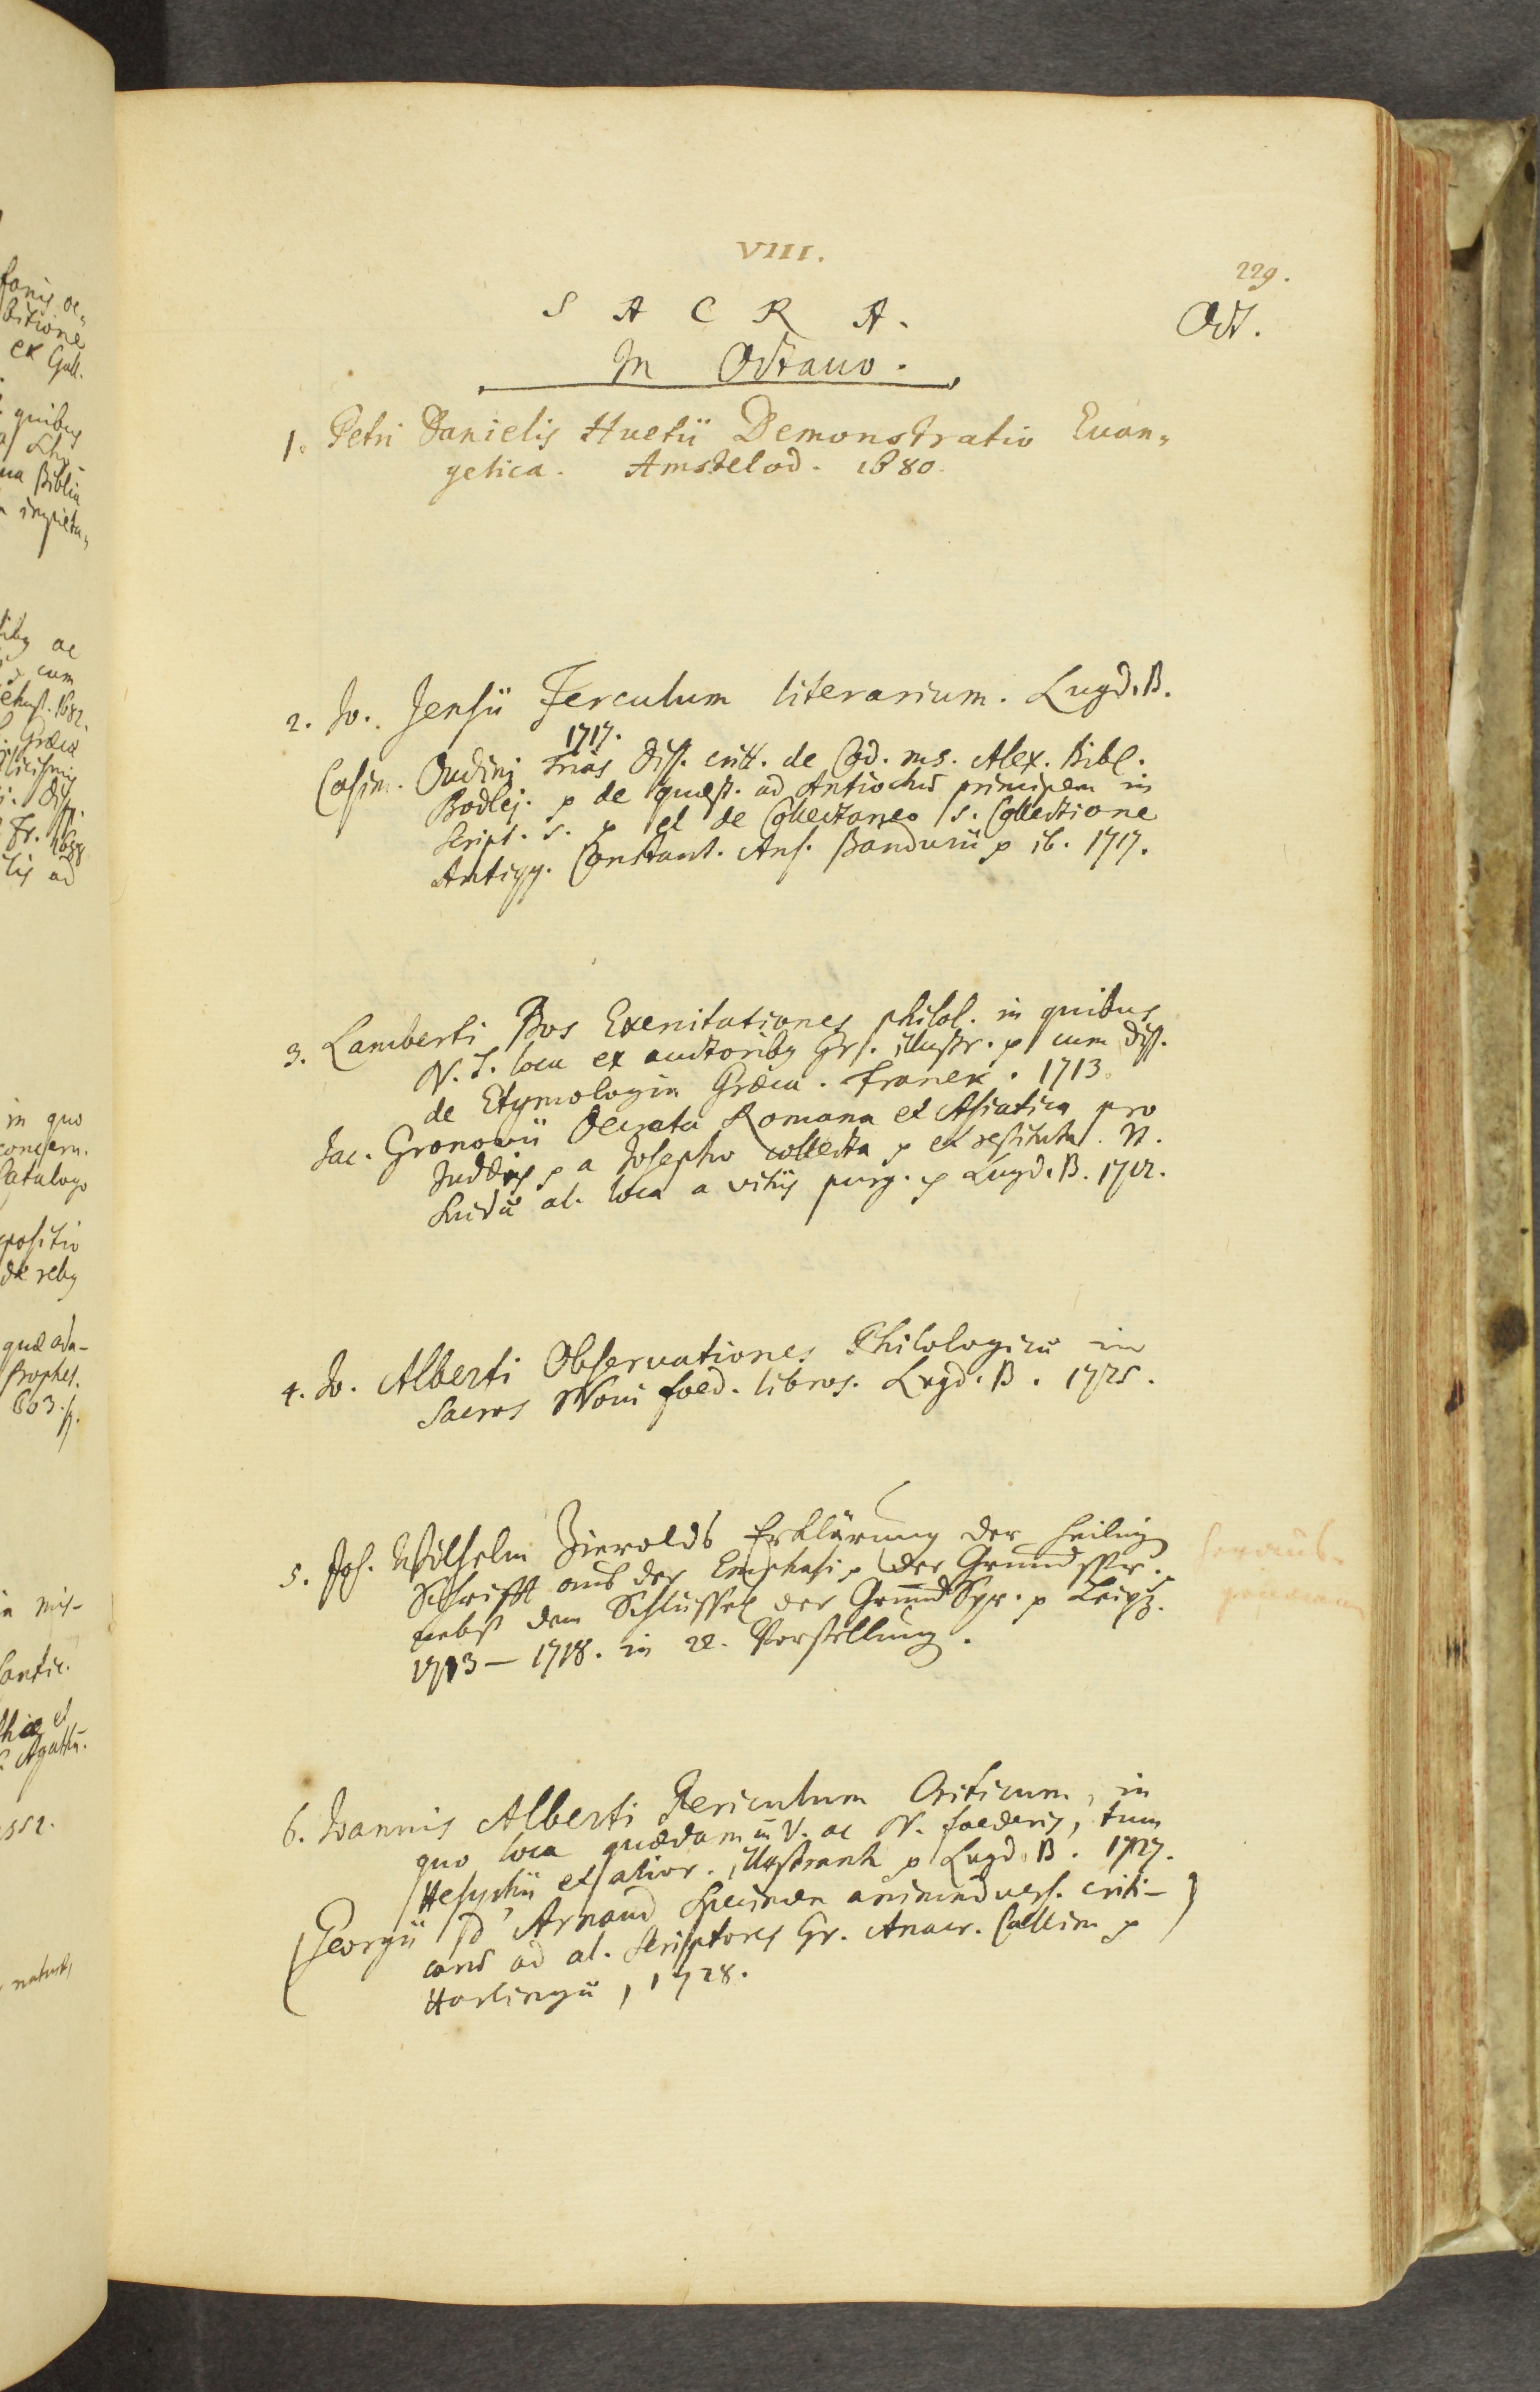 VIII.
229.
SACRA.
Oct.
In Octauo.
1. Petri Danielis Huetii Demonstratio Euan„
gelica. Amstelod. 1680.
2. Jo. Jensii Ferculum literarium. Lugd. B.
1717.
Casim. Oudini Trias Diss. critt. de Cod. ms. Alex. Bibl.
Bodlej. p de quæst. ad Antiochũ principem in
script. s. p et de Collectaneo s. Collectione
Antiqq. Constant. Ans. Bandurii p ib. 1717.
3. Lamberti Bos Exercitationes philol. in quibus
N. T. loca ex auctoribg Gr. illustr. p cum Diss.
de Etymologia Græca. Franek. 1713.
Jac. Gronovii Decreta Romana et Asiatica pro
Judæis p a Josepho collecta p et restituta. It.
Suidæ al. loca a vitiis purg. p Lugd. B. 1712.
4. Jo. Alberti Observationes Philologicæ in
sacros Novi foed. libros. Lugd. B. 1725.
5. Joh. Wilhelm Zierolds Erklärung der Heilig
Schrifft aus der Emphasi p der Grundspr.
nebst dem Schlüssel der Grund Spr. p Leipz.
1713–1718. in 22. Vorstellung.
heraus-
6. Joannis Alberti Periculum Criticum, in
quo loca quædam ũ V. ac N. foederis, tum
Hesychii et alior. illustrant p Lugd. B. 1727.
(Georgii D'Arnaud Specimen animadvers. criti-
carũ ad al. scriptores Gr. Anacr. Callim p)
Harlingæ, 1728.
fanis ac„
bitione
ex Gall.
quibus
ua Biblia
ac
cum
1682.
Græcæ
Diss.
Fr.
ad
in quo
consern.
Catalogo
positio
de rebg
quæ ada-
Prophet.
603.
mis-
Cantic.
et
Agathu.